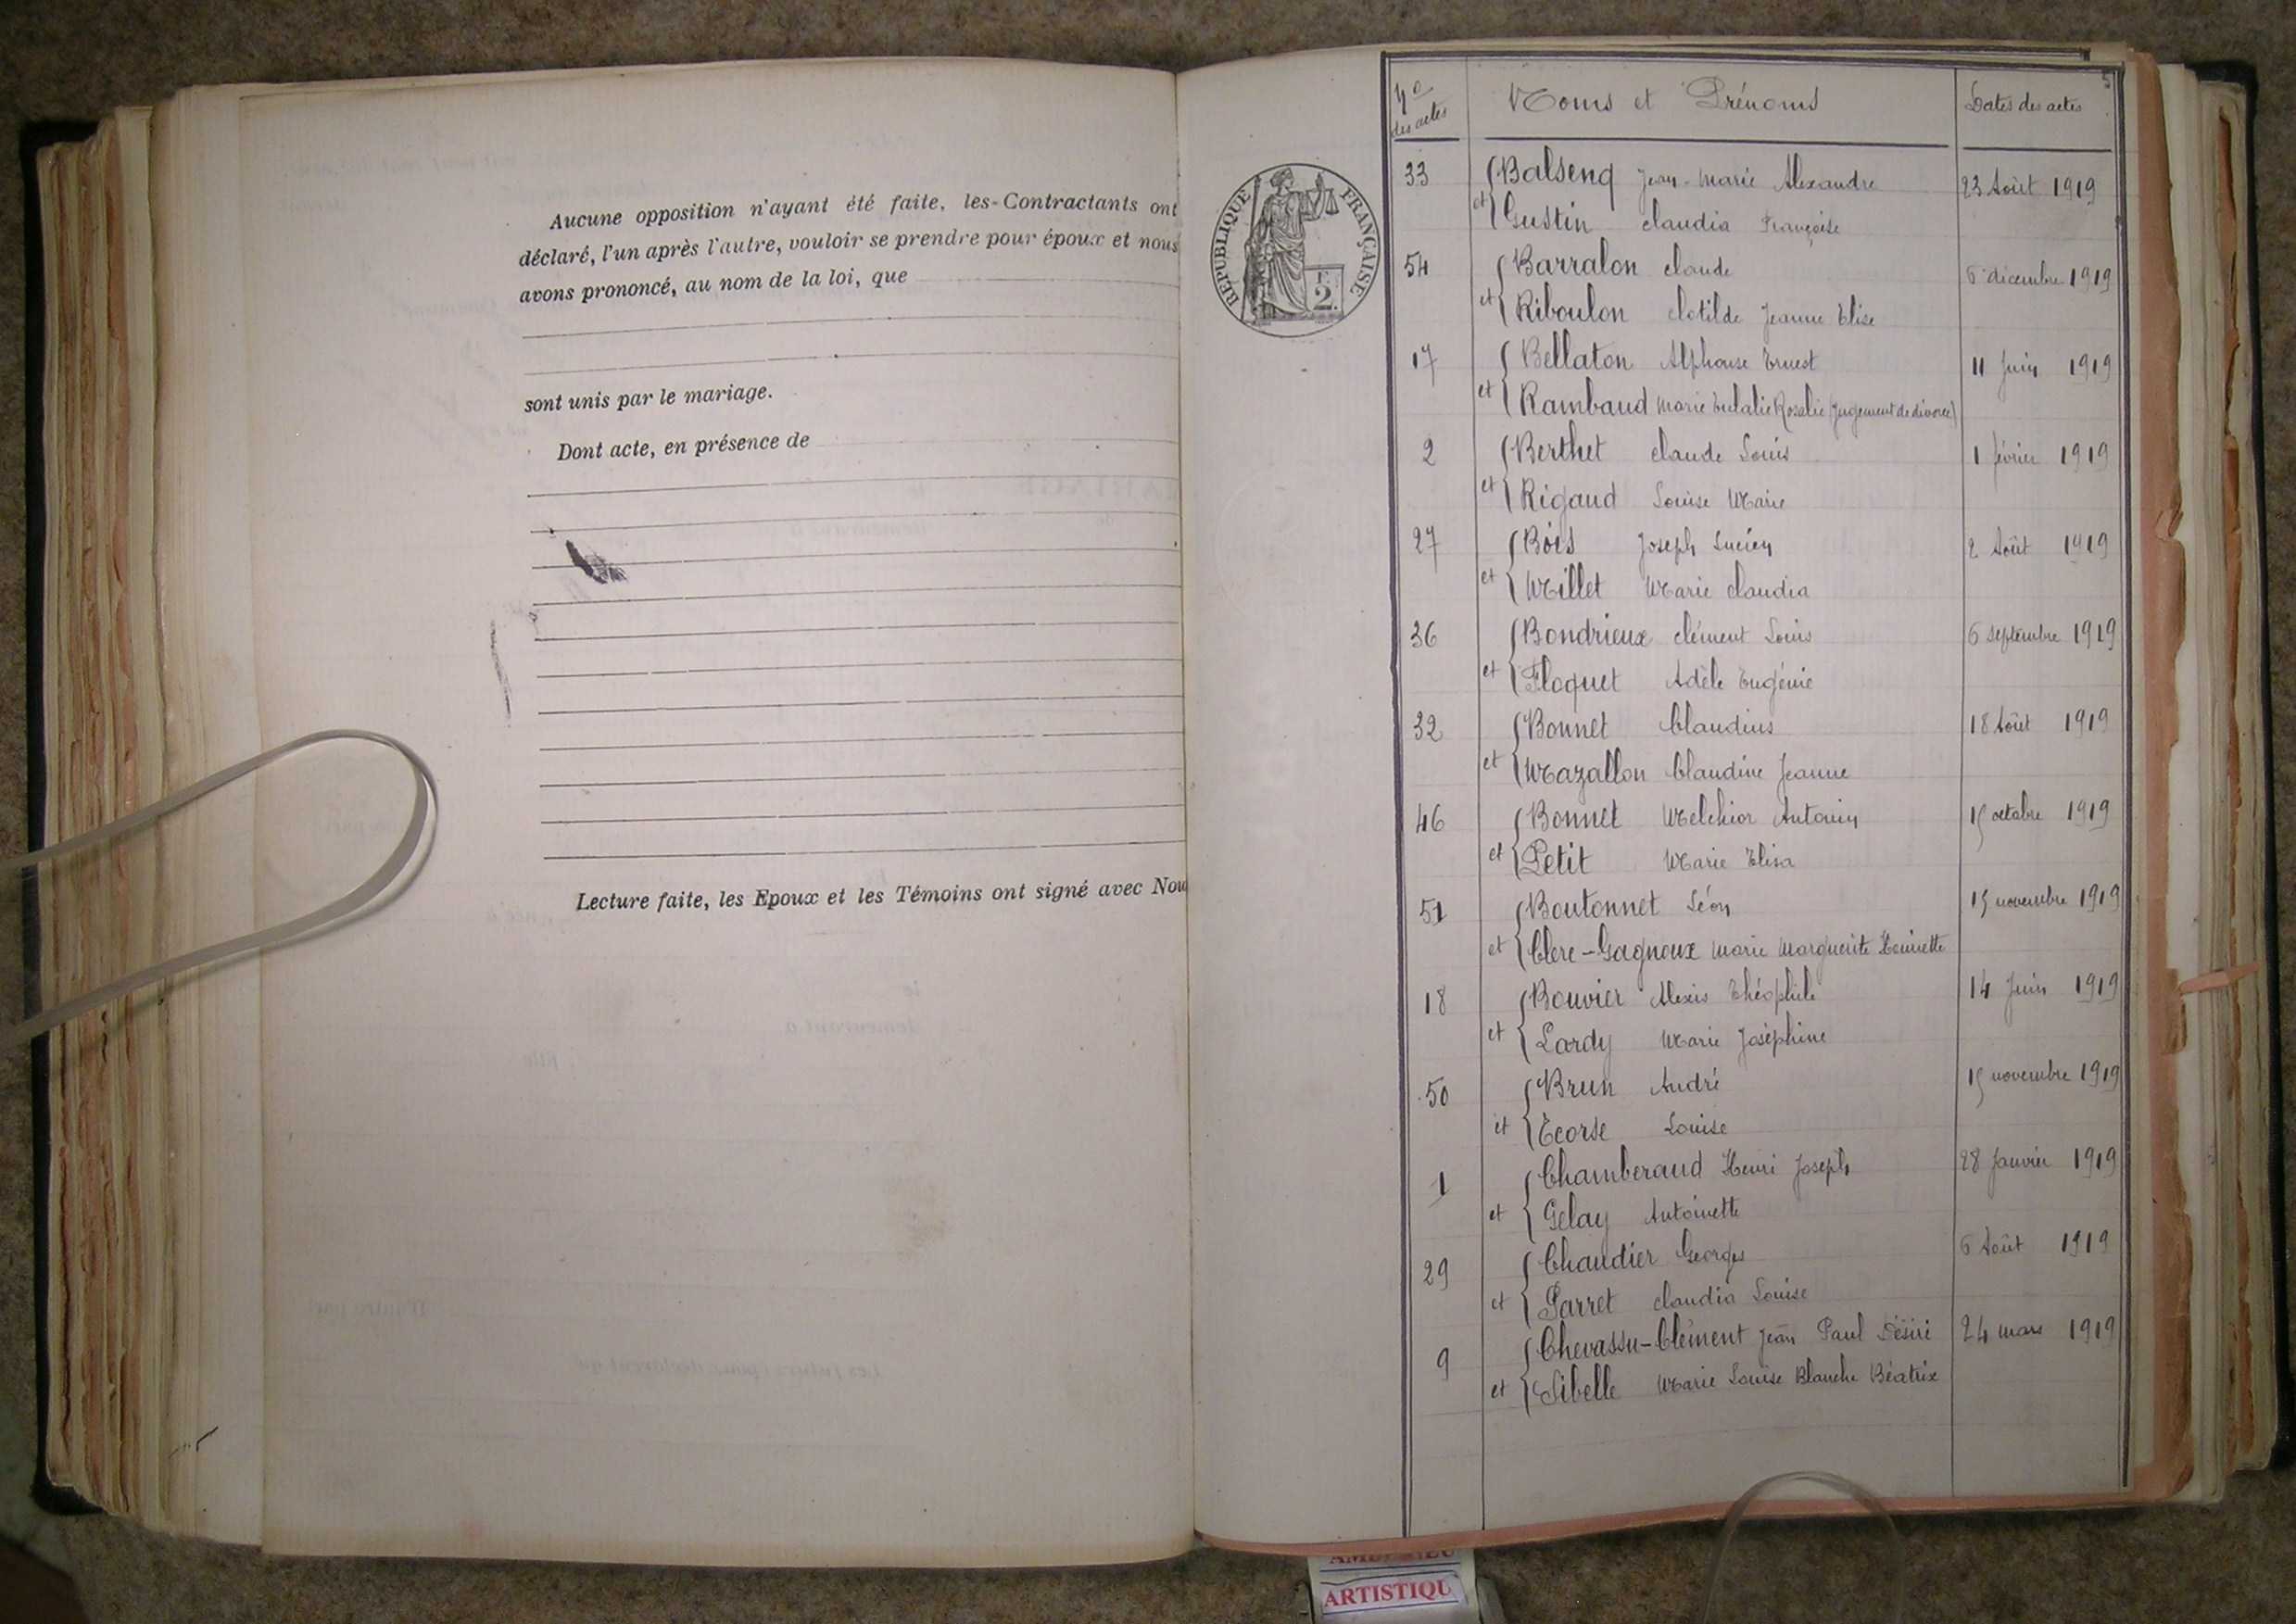 Aucune opposition n'ayant été faite, les-Contractants ont
déclaré, l'un après l'autre, vouloir se prendre pour époux et nous
avons prononcé, au nom de la loi, que
sont unis par le mariage.
Dont acte, en présence de
Lecture faite, les Epoux et les Témoins ont signé avec Nou
RÉPUBLIQUE FRANÇAISE
2
Nos des actes Noms et Prénoms Dates des actes
33 Balsenq Jean-Marie Alexandre 23 Août 1919
et Gustin Claudia Françoise
54 Barralon Claude 6 décembre 1919
et Riboulon Clotilde Jeanne Elise
17 Bellaton Alphonse Ernest 11 Juin 1919
et Rambaud Marie Eulalie Rosalie (Jugement de divorce)
2 Berthet Claude Louis 1 février 1919
et Rigaud Louise Marie
27 Bois Joseph Lucien 2 Août 1919
et Millet Marie Claudia
36 Bondrieux Clément Louis 6 septembre 1919
et Floquet Adèle Eugénie
32 Bonnet Claudius 18 Août 1919
et Mazallon Claudine Jeanne
46 Bonnet Melchior Antonin 15 octobre 1919
et Petit Marie Elisa
51 Boutonnet Léon 15 novembre 1919
et Clerc-Gagnoux Marie Marguerite Henriette
18 Bouvier Alexis Théophile 14 Juin 1919
et Lardy Marie Joséphine
50 Brun André 15 novembre 1919
et Ecorse Louise
1 Chamberaud Henri Joseph 28 Janvier 1919
et Gelay Antoinette
29 Chaudier Georges 6 Août 1919
et Parret Claudia Louise
9 Chevassu-Clément Jean Paul Désiré 24 mars 1919
et Sibelle Marie Louise Blanche Béatrix
ARTISTIQU